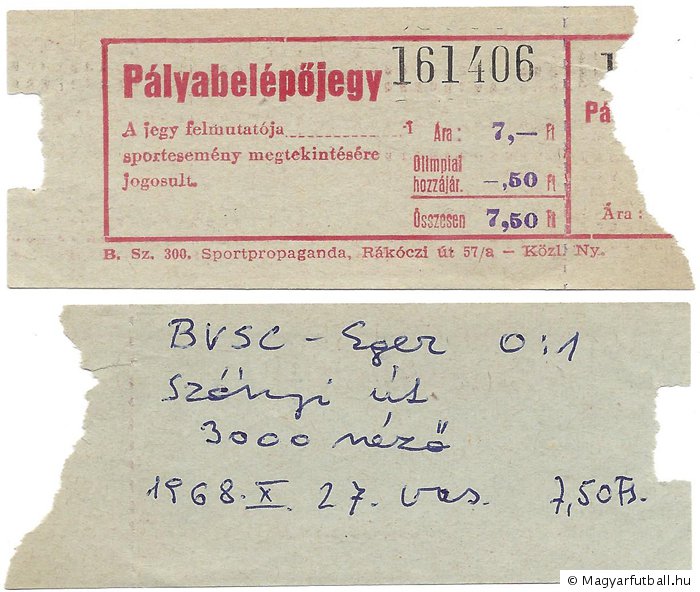 Pályabelépőjegy 161406
A jegy felmutatója -i Ára: 7,— Ft
sportesemény megtekintésére
jogosult.
Olimpiai
hozzájár. —,50 Ft
Összesen 7,50 Ft
Pá
Ára:
B. Sz. 300. Sportpropaganda, Rákóczi út 57/a — Közl. Ny.
BVSC - Eger 0:1
Szőnyi út
3000 néző
1968. X. 27. vas. 7,50 Ft.
© Magyarfutball.hu